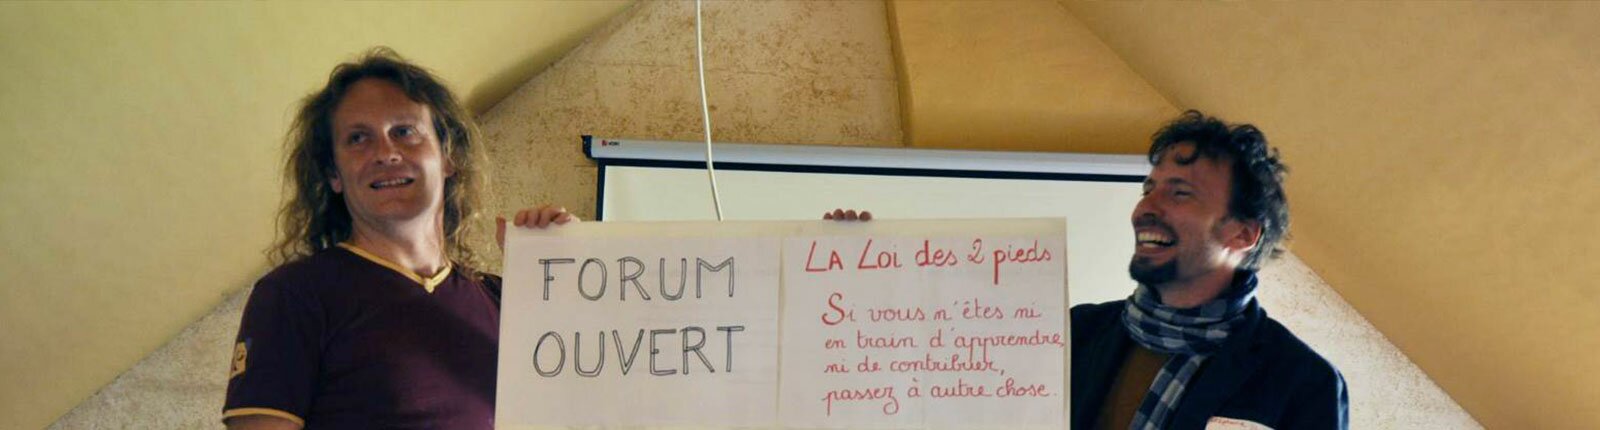 FORUM
OUVERT
LA Loi des 2 pieds
Si vous n'êtes ni
en train d'apprendre,
ni de contribuer,
passez à autre chose.